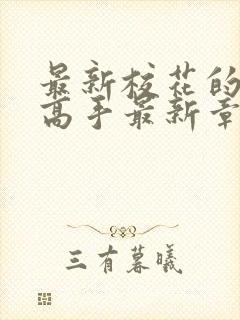 最新校花的
高手最新章
三有暮曦